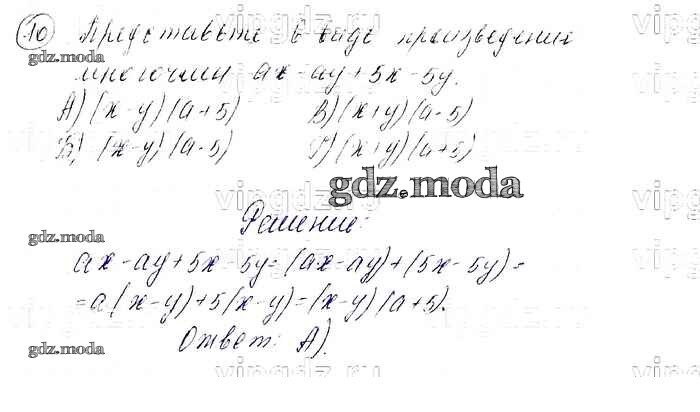 10 Представьте в виде произведения
многочлен ax - ay + 5x - 5y.
А) (x-y)(a+5) В) (x+y)(a-5)
Б) (x-y)(a-5) Г) (x+y)(a+5)
gdz.moda
Решение:
ax - ay + 5x - 5y = (ax - ay) + (5x - 5y) =
= a(x-y) + 5(x-y) = (x-y)(a+5).
Ответ: А).
gdz.moda
gdz.moda
gdz.moda
gdz.moda
vipgdz.ru
vipgdz.ru
vipgdz.ru
vipgdz.ru